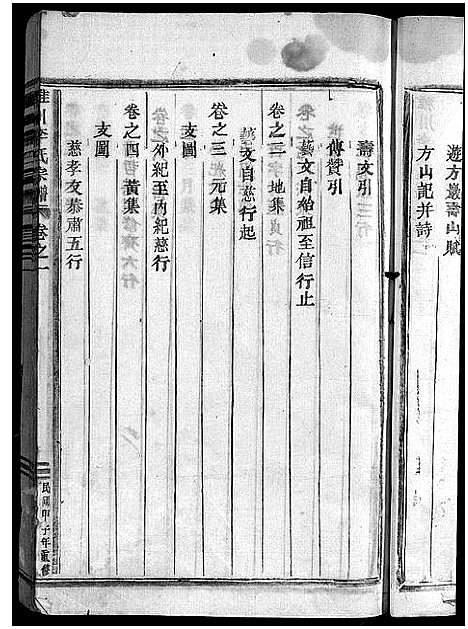 遊方巖壽山賦
方山記并詩
壽文引
傳贊引
藝文自始祖至信行止
卷之二 地集
藝文自慈行起
卷之三 元集
支圖
外紀至內紀慈行
卷之四 黃集
支圖
慈孝友恭肅五行
川李氏宗譜 卷之一
民國甲子年重修